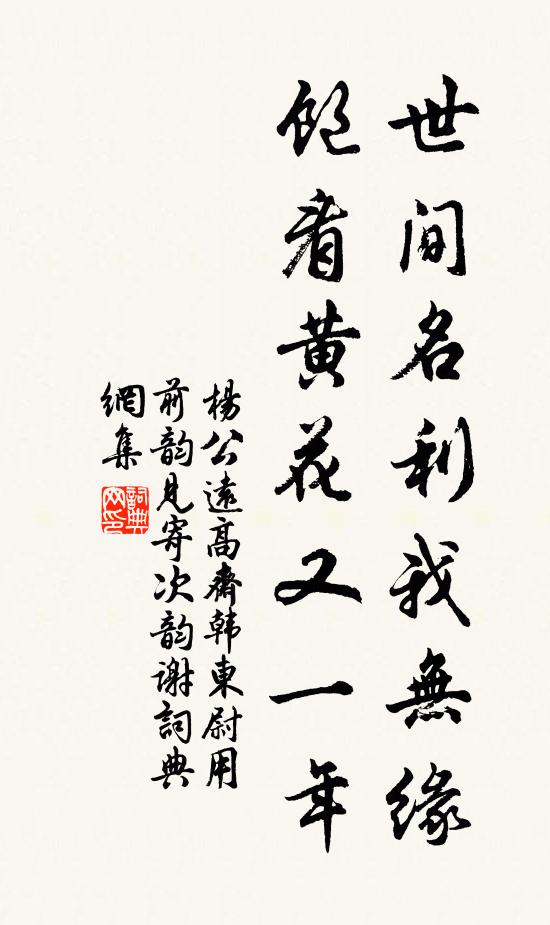 世間名利我無緣
飽看黃花又一年
楊公遠高齋韓東尉用
前韵見寄次韵謝詞典
網集
詞典
网印